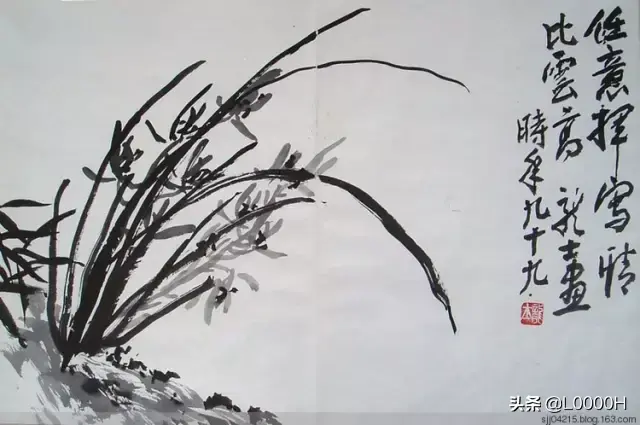 任意揮寫情
比雲高 龍畫
時年九十九
头条 @L0000H
sjj04215.blog.163.com